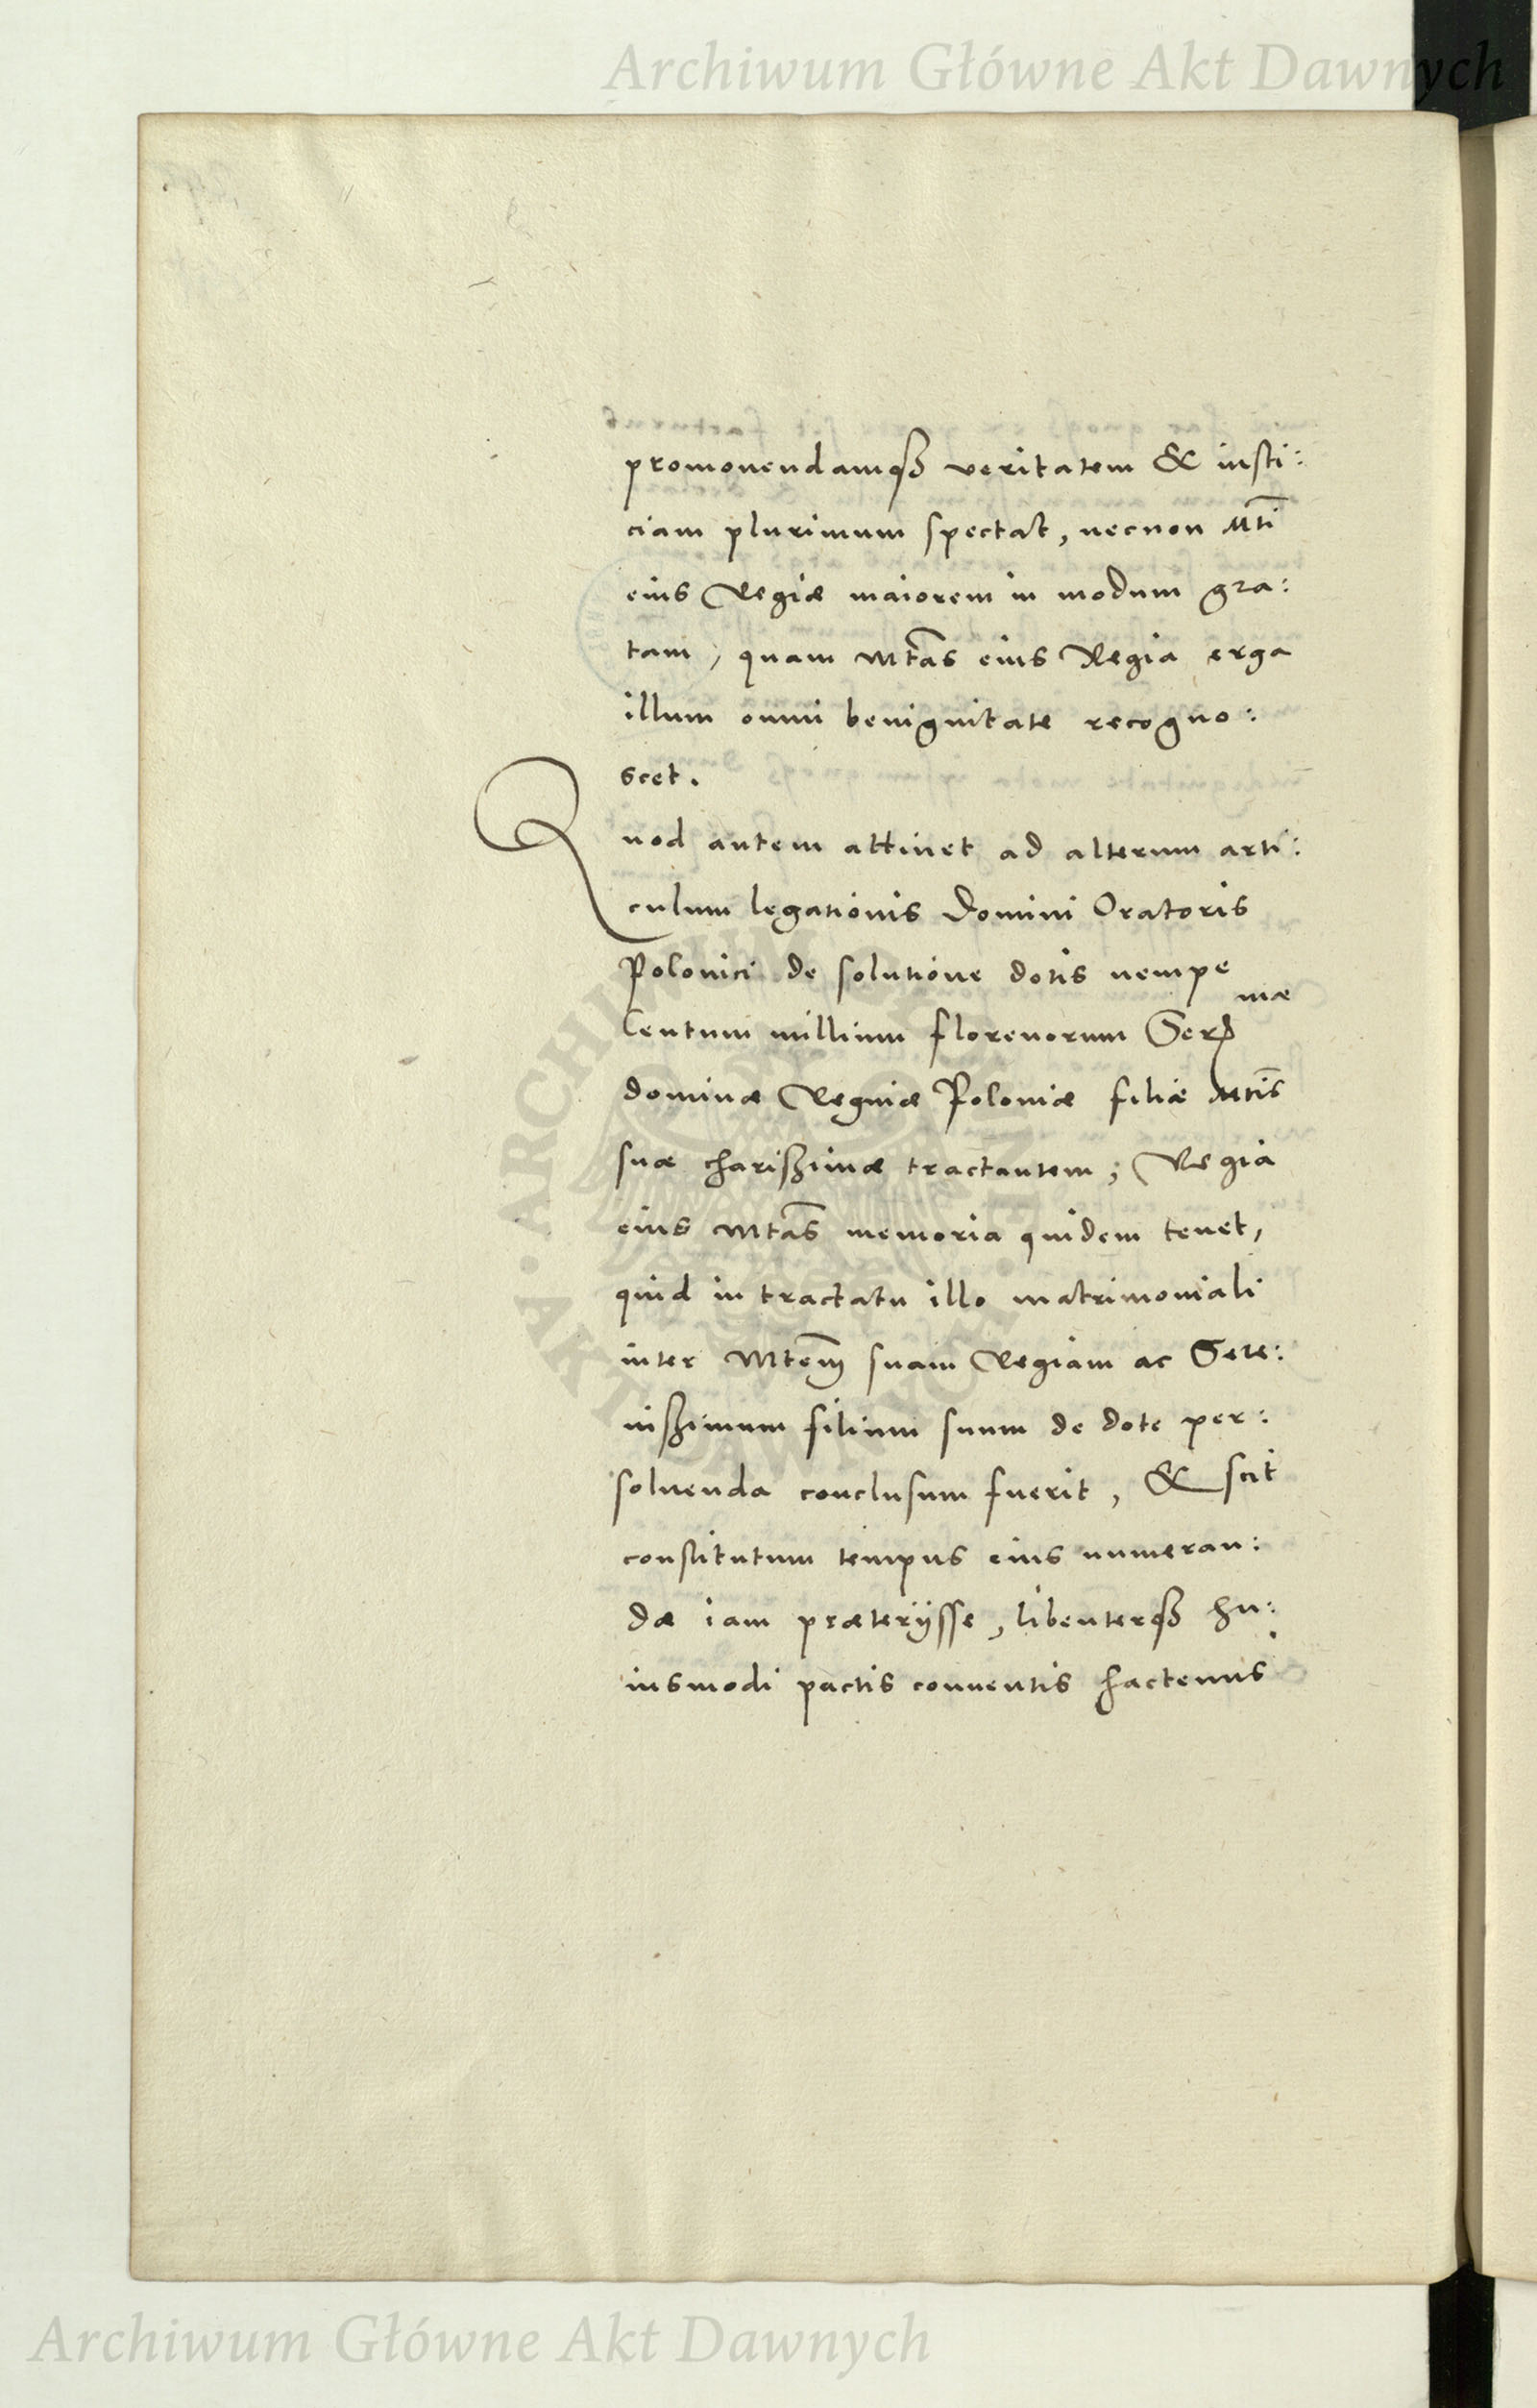 Archiwum Główne Akt Dawnych
promouendamqȝ veritatem & iusti:
ciam plurimum spectat, necnon Mti
eius Regiæ maiorem in modum gra:
tam, quam Mtas eius Regia erga
illum omni benignitate recogno:
scet.
Quod autem attinet ad alterum arti:
culum legationis Domini Oratoris
Polonici de solutione dotis nempe
Centum millium florenorum Sermæ
dominæ Reginæ Poloniæ filiæ Mtis
suæ charißimæ tractantem, Regia
eius Mtas memoria quidem tenet,
quid in tractatu illo matrimoniali
inter Mtem suam Regiam ac Sere:
nißimum filium suum de dote per:
soluenda conclusum fuerit, & scit
constitutum tempus eius numeran:
dæ iam præterijsse, libenterqȝ hu:
iusmodi pactis conuentis hactenus
ARCHIWUM GŁÓWNE · AKT DAWNYCH ·
Archiwum Główne Akt Dawnych